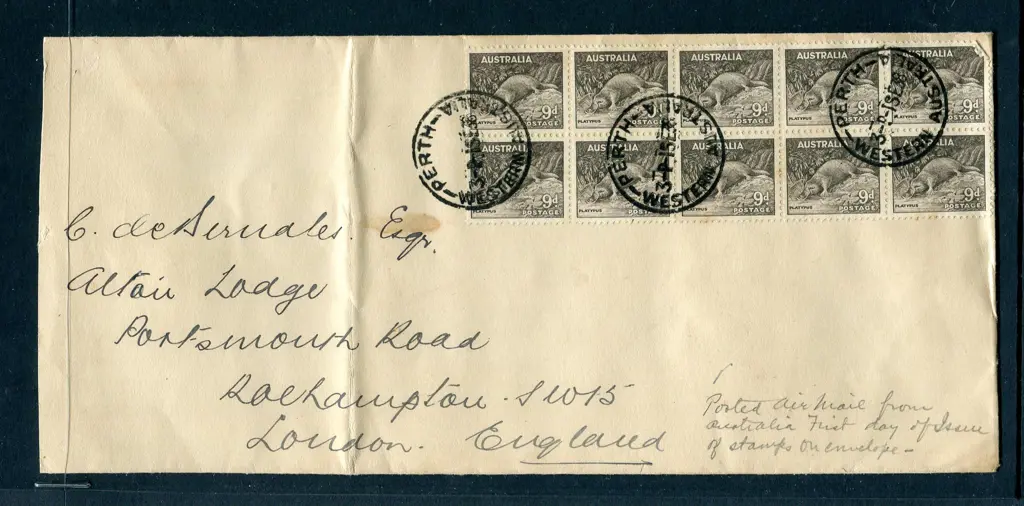 AUSTRALIA AUSTRALIA AUSTRALIA AUSTRALIA
PLATYPUS 9d POSTAGE PLATYPUS 9d POSTAGE PLATYPUS 9d POSTAGE PLATYPUS 9d POSTAGE 9d POSTAGE
AUSTRALIA AUSTRALIA
PLATYPUS 9d POSTAGE PLATYPUS 9d POSTAGE PLATYPUS 9d POSTAGE PLATYPUS 9d POSTAGE PLATYPUS 9d POSTAGE
PERTH WESTERN AUSTRALIA
3-P 1SE38
PERTH WESTERN AUSTRALIA
3-P 1SE38
PERTH WESTERN AUSTRALIA
3-P 1SE38
C. de Bernales. Esqr.
Altair Lodge
Portsmouth Road
Roehampton. S W 15
London. England
Posted Air Mail from
Australia First day of Issue
of stamps on envelope -